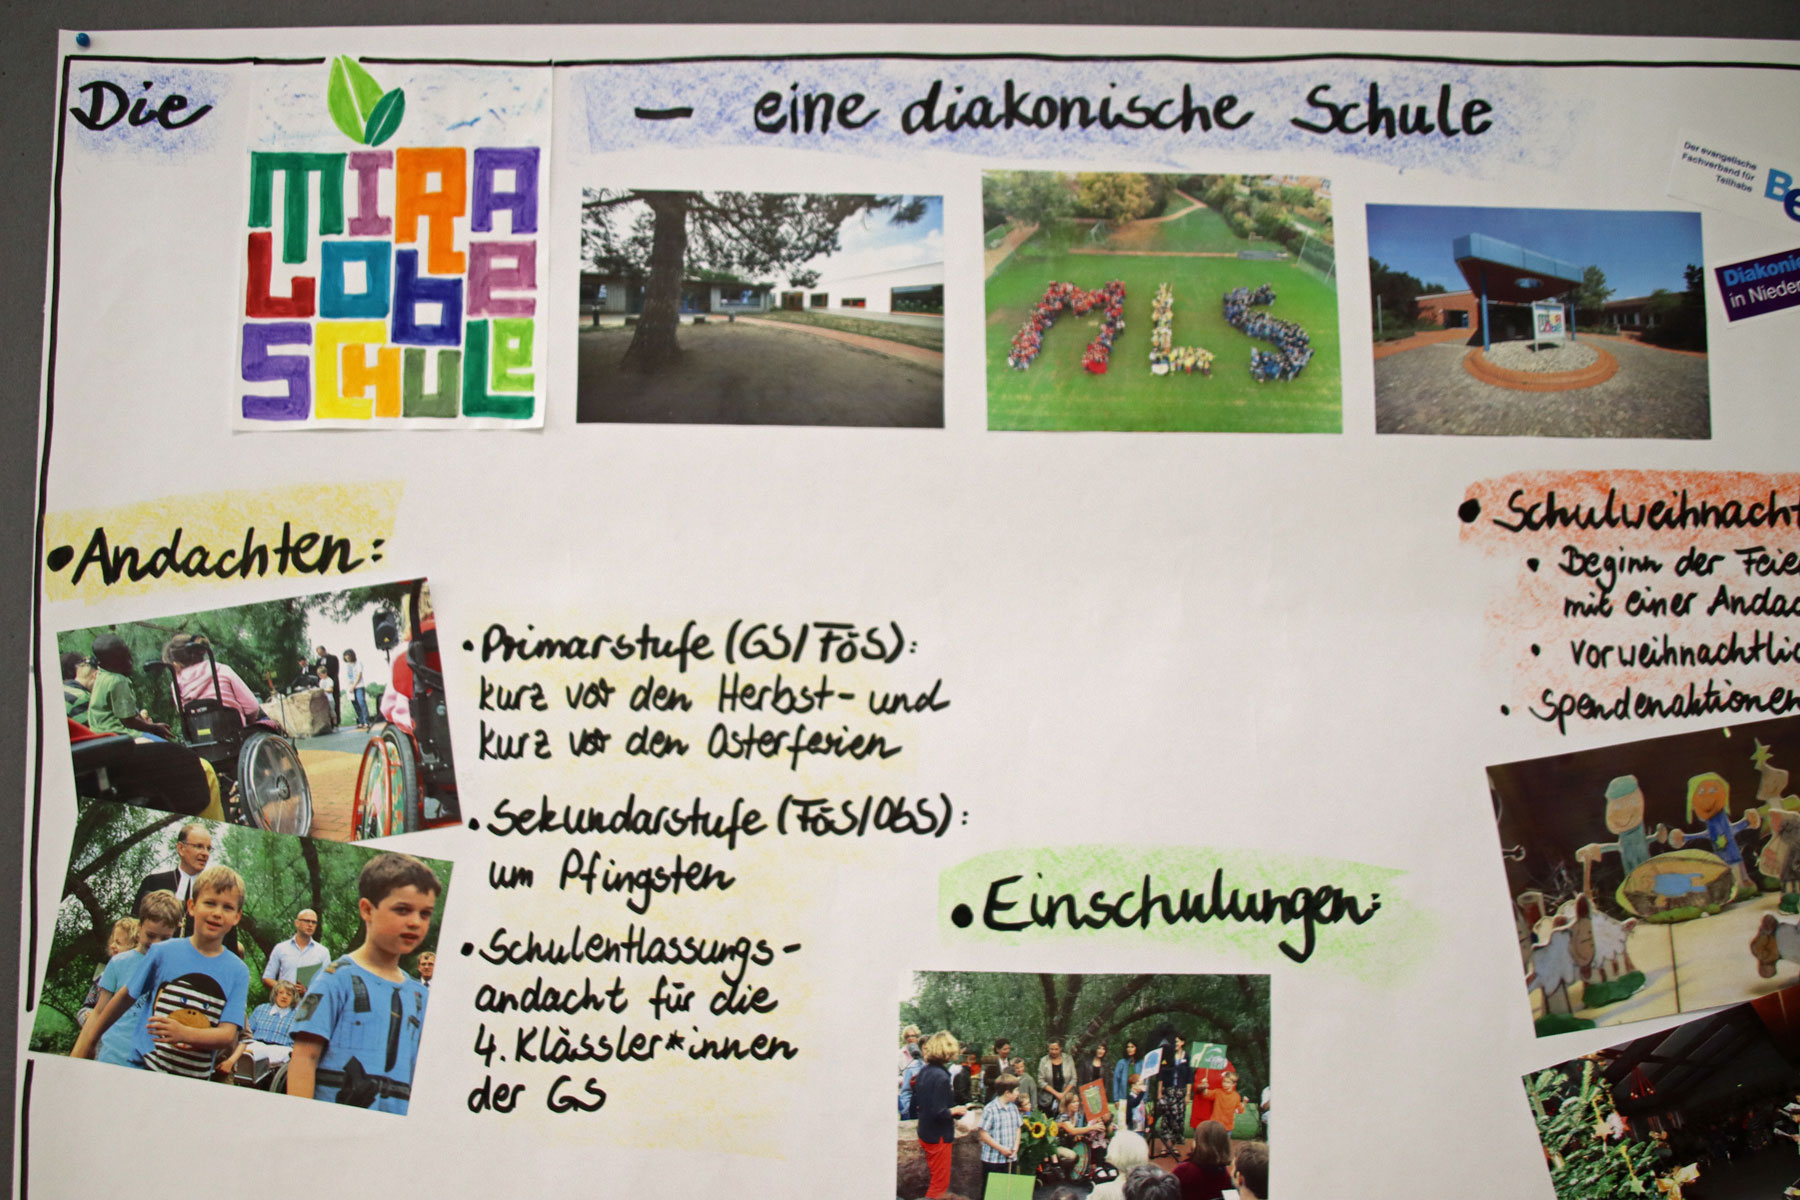 Die
MIRA
LOBE
SCHULE
– eine diakonische Schule
MLS
Der evangelische
Fachverband für
Teilhabe
Diakonie
in Nieder
• Andachten:
• Primarstufe (GS/FöS):
kurz vor den Herbst- und
kurz vor den Osterferien
• Sekundarstufe (FöS/ObS):
um Pfingsten
• Schulentlassungs-
andacht für die
4. Klässler*innen
der GS
• Einschulungen:
• Schulweihnacht
• Beginn der Feie
mit einer Andac
• vorweihnachtlic
• Spendenaktionen